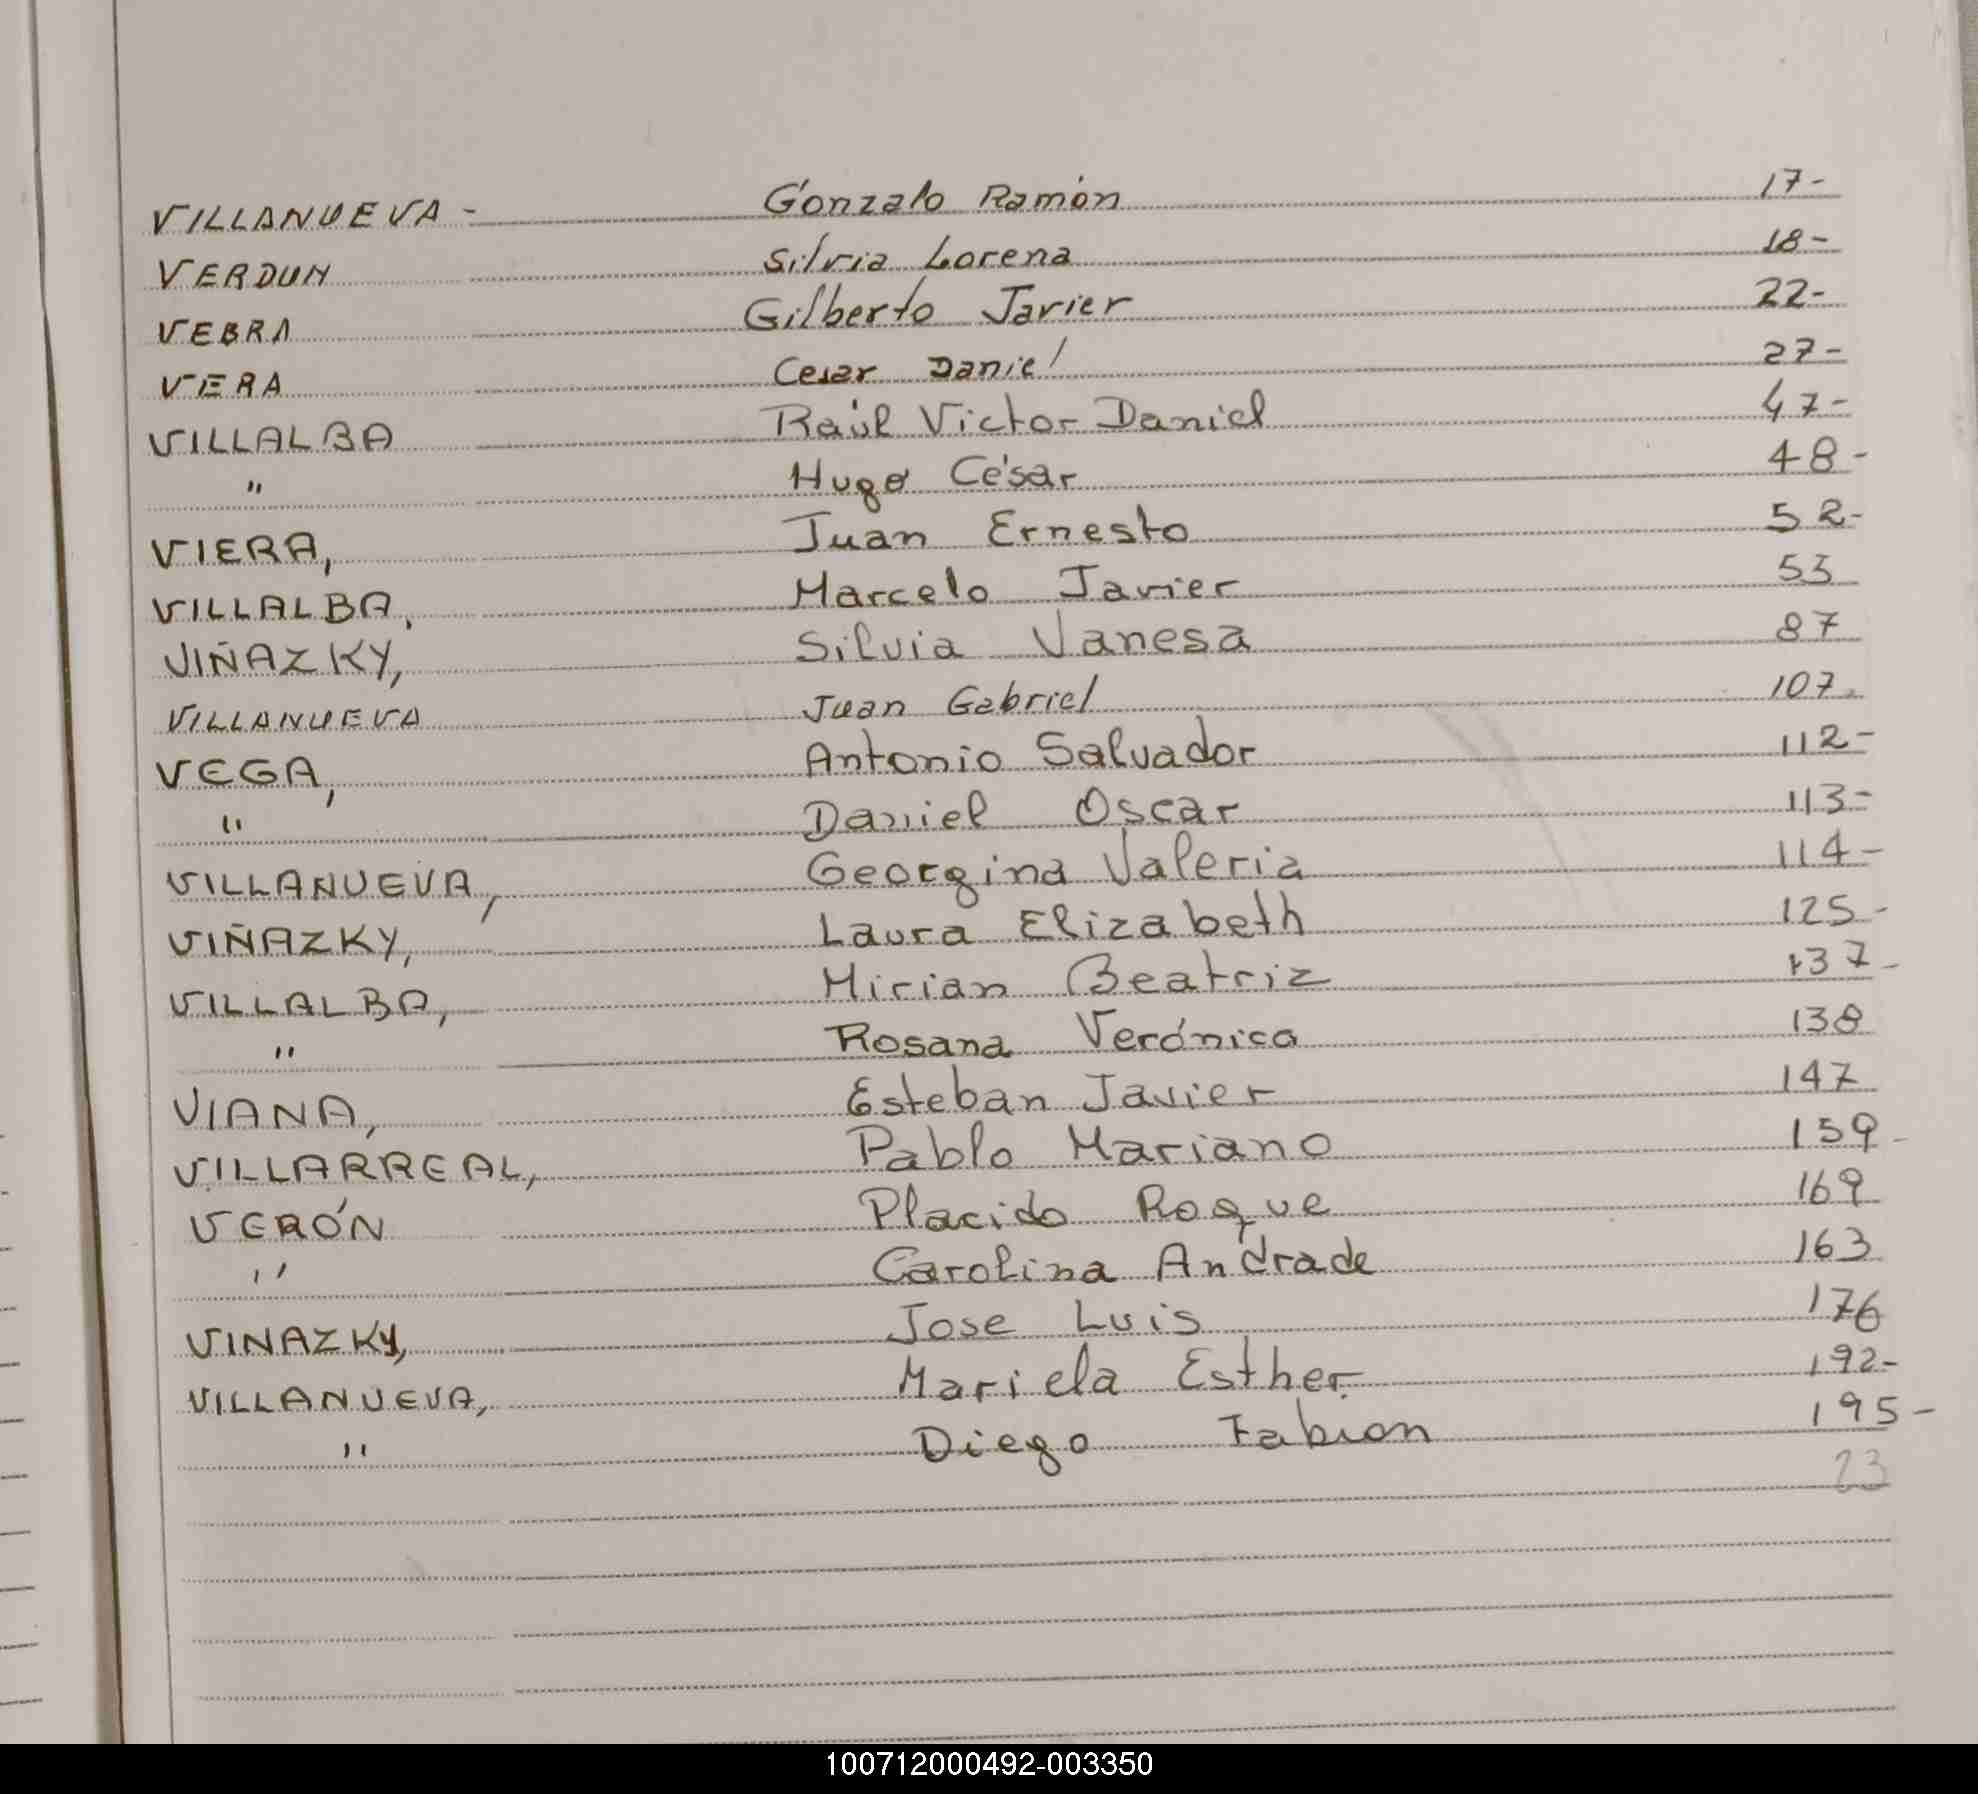 VILLANUEVA - Gonzalo Ramón 17-
VERDUN Silvia Lorena 18-
VEBRA Gilberto Javier 22-
VERA Cesar Daniel 27-
VILLALBA Raúl Victor Daniel 47-
" Hugo César 48-
VIERA, Juan Ernesto 52-
VILLALBA, Marcelo Javier 53
VIÑAZKY, Silvia Vanesa 87
VILLANUEVA Juan Gabriel 107
VEGA, Antonio Salvador 112-
" Daniel Oscar 113-
VILLANUEVA, Georgina Valeria 114-
VIÑAZKY, Laura Elizabeth 125-
VILLALBA, Mirian Beatriz 137-
" Rosana Verónica 138
VIANA, Esteban Javier 147
VILLARREAL, Pablo Mariano 159-
VERÓN Placido Roque 169
" Carolina Andrade 163
VINAZKY, Jose Luis 176
VILLANUEVA, Mariela Esther 192-
" Diego Fabian 195-
23
100712000492-003350